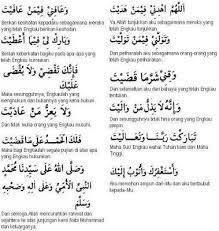 اَللّٰهُمَّ اهْدِنِيْ فِيْمَنْ هَدَيْتَ
Ya Allah tunjukkan aku sebagaimana mereka yang telah Engkau beri petunjuk
وَعَافِنِيْ فِيْمَنْ عَافَيْتَ
Berikan kesihatan kepadaku sebagaimana mereka yang telah Engkau berikan kesihatan
وَتَوَلَّنِيْ فِيْمَنْ تَوَلَّيْتَ
Dan peliharalah aku sebagaimana orang-orang yang Engkau peliharakan
وَبَارِكْ لِيْ فِيْمَا أَعْطَيْتَ
Berilah keberkatan bagiku pada apa-apa yang telah Engkau kurniakan
وَقِنِيْ شَرَّمَا قَضَيْتَ
Dan selamatkan aku dari bahaya yang telah Engkau
فَإِنَّكَ تَقْضِيْ وَلَا يُقْضَى عَلَيْكَ
Maka sesungguhnya, Engkaulah yang menghukum dan bukannya yang kena hukum
وَإِنَّهُ لَا يَذِلُّ مَنْ وَالَيْتَ
Dan sesungguhnya tidak hina orang yang Engkau
وَلَا يَعِزُّ مَنْ عَادَيْتَ
Dan tidak mulia orang yang Engkau musuhi
تَبَارَكْتَ رَبَّنَا وَتَعَالَيْتَ
Maha Suci Engkau wahai Tuhan kami dan Maha Tinggi.
فَلَكَ الْحَمْدُ عَلَى مَا قَضَيْتَ
Maka bagi Engkaulah segala pujian di atas apa yang Engkau hukumkan
وَأَسْتَغْفِرُكَ وَأَتُوْبُ إِلَيْكَ
Aku memohon ampun dari-Mu dan aku bertaubat kepada-Mu.
وَصَلَّى اللهُ عَلَى سَيِّدِنَا مُحَمَّدٍ النَّبِيِّ الْأُمِّيِّ وَعَلَى آلِهِ وَصَحْبِهِ وَسَلَّمَ
Dan semoga Allah mencurahkan rahmat dan sejahtera ke atas junjungan kami Nabi Muhammad dan keluarganya